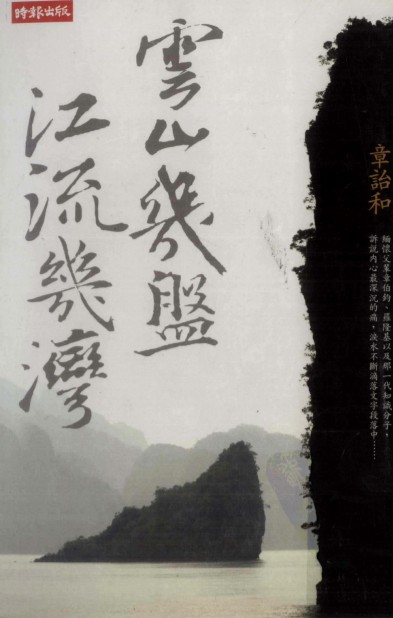 時報出版
雲山幾盤
江流幾灣
章詒和
緬懷父輩章伯鈞、羅隆基以及那一代知識分子，
訴說內心最深沉的痛，淚水不斷滴落文字段落中……